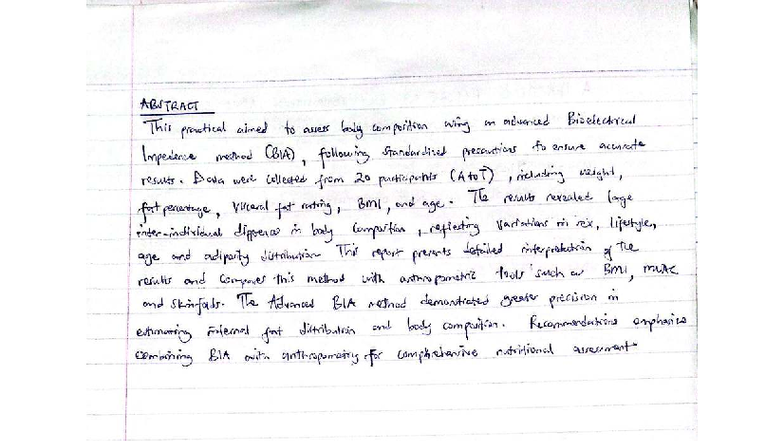 ABSTRACT
This practical aimed to assess body composition using an advanced Bioelectrical
Impedence method (BIA), following standardized precautions to ensure accurate
results. Data were collected from 20 participants (A to T), including weight,
fat percentage, visceral fat rating, BMI, and age. The results revealed large
inter-individual differences in body composition, reflecting variations in sex, lifestyle,
age and adiposity distribution. This report presents detailed interpretation of the
results and compares this method with anthropometric tools such as BMI, MUAC
and skinfolds. The Advanced BIA method demonstrated greater precision in
estimating internal fat distribution and body composition. Recommendations emphasise
combining BIA with anthropometry for comprehensive nutritional assessment